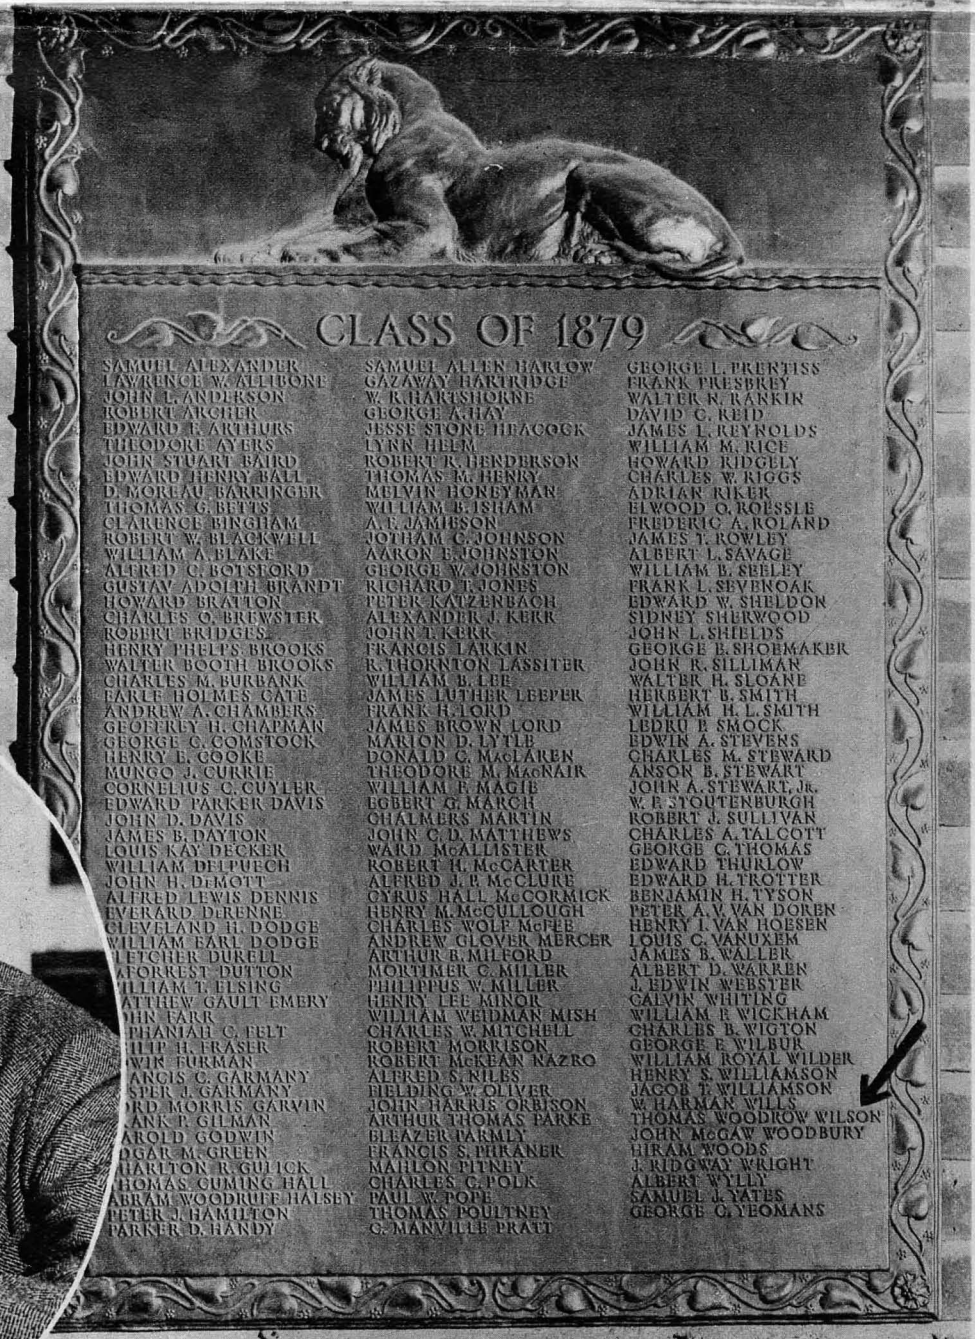 CLASS OF 1879
SAMUEL ALEXANDER
LAWRENCE W. ALLIBONE
JOHN L. ANDERSON
ROBERT ARCHER
EDWARD F. ARTHURS
THEODORE AYERS
JOHN STUART BAIRD
EDWARD HENRY BALL
D. MOREAU BARRINGER
THOMAS G. BETTS
CLARENCE BINGHAM
ROBERT W. BLACKWELL
WILLIAM A. BLAKE
ALFRED C. BOTSFORD
GUSTAV ADOLPH BRANDT
HOWARD BRATTON
CHARLES O. BREWSTER
ROBERT BRIDGES
HENRY PHELPS BROOKS
WALTER BOOTH BROOKS
CHARLES M. BURBANK
EARLE HOLMES CATE
ANDREW A. CHAMBERS
GEOFFREY H. CHAPMAN
GEORGE C. COMSTOCK
HENRY E. COOKE
MUNGO J. CURRIE
CORNELIUS C. CUYLER
EDWARD PARKER DAVIS
JOHN D. DAVIS
JAMES B. DAYTON
LOUIS KAY DECKER
WILLIAM DELPUECH
JOHN H. DEMOTT
ALFRED LEWIS DENNIS
EVERARD DERENNE
CLEVELAND H. DODGE
WILLIAM EARL DODGE
LETCHER DURELL
FORREST DUTTON
ILLIAM T. ELSING
ATTHEW GAULT EMERY
HN FARR
PHANIAH C. FELT
ILIP H. FRASER
WIN FURMAN
ANCIS C. GARMANY
SPER J. GARMANY
ORD MORRIS GARVIN
ANK P. GILMAN
AROLD GODWIN
DGAR M. GREEN
HARLTON R. GULICK
THOMAS CUMING HALL
ABRAM WOODRUFF HALSEY
PETER J. HAMILTON
PARKER D. HANDY
SAMUEL ALLEN HARLOW
GAZAWAY HARTRIDGE
W. R. HARTSHORNE
GEORGE A. HAY
JESSE STONE HEACOCK
LYNN HELM
ROBERT R. HENDERSON
THOMAS M. HENRY
MELVIN HONEYMAN
WILLIAM B. ISHAM
A. F. JAMIESON
JOTHAM C. JOHNSON
AARON E. JOHNSTON
GEORGE W. JOHNSTON
RICHARD T. JONES
PETER KATZENBACH
ALEXANDER J. KERR
JOHN T. KERR
FRANCIS LARKIN
R. THORNTON LASSITER
WILLIAM B. LEE
JAMES LUTHER LEEPER
FRANK H. LORD
JAMES BROWN LORD
MARION D. LYTLE
DONALD C. MACLAREN
THEODORE M. MACNAIR
WILLIAM F. MAGIE
EGBERT G. MARCH
CHALMERS MARTIN
JOHN C. D. MATTHEWS
WARD MCALLISTER
ROBERT H. MCCARTER
ALFRED J. P. MCCLURE
CYRUS HALL MCCORMICK
HENRY M. MCCULLOUGH
CHARLES WOLF MCFEE
ANDREW GLOVER MERCER
ARTHUR B. MILFORD
MORTIMER C. MILLER
PHILIPPUS W. MILLER
HENRY LEE MINOR
WILLIAM WEIDMAN MISH
CHARLES W. MITCHELL
ROBERT MORRISON
ROBERT MCKEAN NAZRO
ALFRED S. NILES
FIELDING W. OLIVER
JOHN HARRIS ORBISON
ARTHUR THOMAS PARKE
ELEAZER PARMLY
FRANCIS S. PHRANER
MAHLON PITNEY
CHARLES C. POLK
PAUL W. POPE
THOMAS POULTNEY
C. MANVILLE PRATT
GEORGE L. PRENTISS
FRANK PRESBREY
WALTER N. RANKIN
DAVID C. REID
JAMES L. REYNOLDS
WILLIAM M. RICE
HOWARD RIDGELY
CHARLES W. RIGGS
ADRIAN RIKER
ELWOOD O. ROESSLE
FREDERIC A. ROLAND
JAMES T. ROWLEY
ALBERT L. SAVAGE
WILLIAM B. SEELEY
FRANK L. SEVENOAK
EDWARD W. SHELDON
SIDNEY SHERWOOD
JOHN L. SHIELDS
GEORGE E. SHOEMAKER
JOHN R. SILLIMAN
WALTER H. SLOANE
HERBERT B. SMITH
WILLIAM H. L. SMITH
LEDRU P. SMOCK
EDWIN A. STEVENS
CHARLES M. STEWARD
ANSON B. STEWART
JOHN A. STEWART, JR.
W. P. STOUTENBURGH
ROBERT J. SULLIVAN
CHARLES A. TALCOTT
GEORGE C. THOMAS
EDWARD THURLOW
EDWARD H. TROTTER
BENJAMIN H. TYSON
PETER A. V. VAN DOREN
HENRY I. VAN HOESEN
LOUIS C. VANUXEM
JAMES B. WALLER
ALBERT D. WARREN
J. EDWIN WEBSTER
CALVIN WHITING
WILLIAM P. WICKHAM
CHARLES B. WIGTON
GEORGE F. WILBUR
WILLIAM ROYAL WILDER
HENRY S. WILLIAMSON
JACOB T. WILLIAMSON
W. HARMAN WILLS
THOMAS WOODROW WILSON
JOHN MCGAW WOODBURY
HIRAM WOODS
J. RIDGWAY WRIGHT
ALBERT WYLLY
SAMUEL J. YATES
GEORGE C. YEOMANS